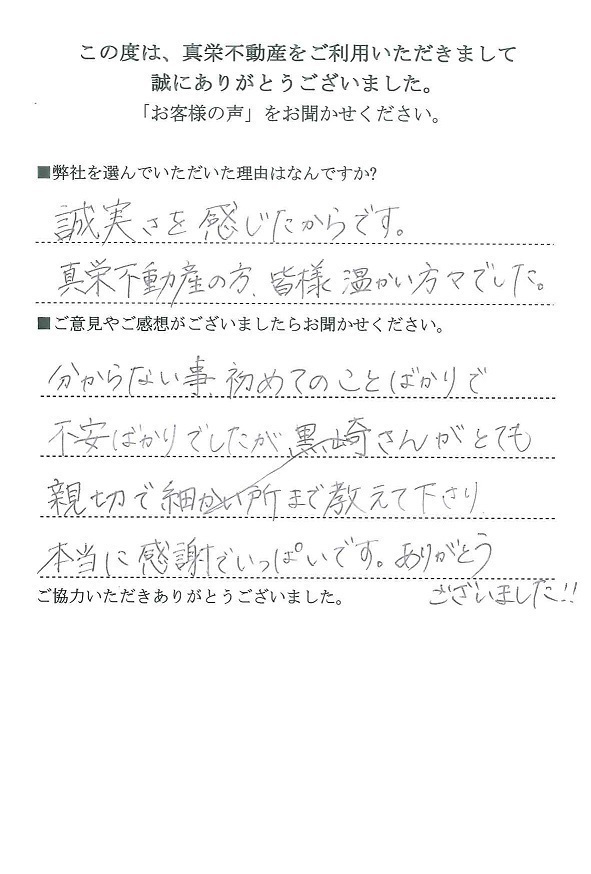 この度は、真栄不動産をご利用いただきまして
誠にありがとうございました。
「お客様の声」をお聞かせください。
■弊社を選んでいただいた理由はなんですか?
誠実さを感じたからです。
真栄不動産の方、皆様温かい方々でした。
■ご意見やご感想がございましたらお聞かせください。
分からない事、初めてのことばかりで
不安ばかりでしたが、黒崎さんがとても
親切で細かい所まで教えて下さり
本当に感謝でいっぱいです。ありがとう
ございました!!
ご協力いただきありがとうございました。